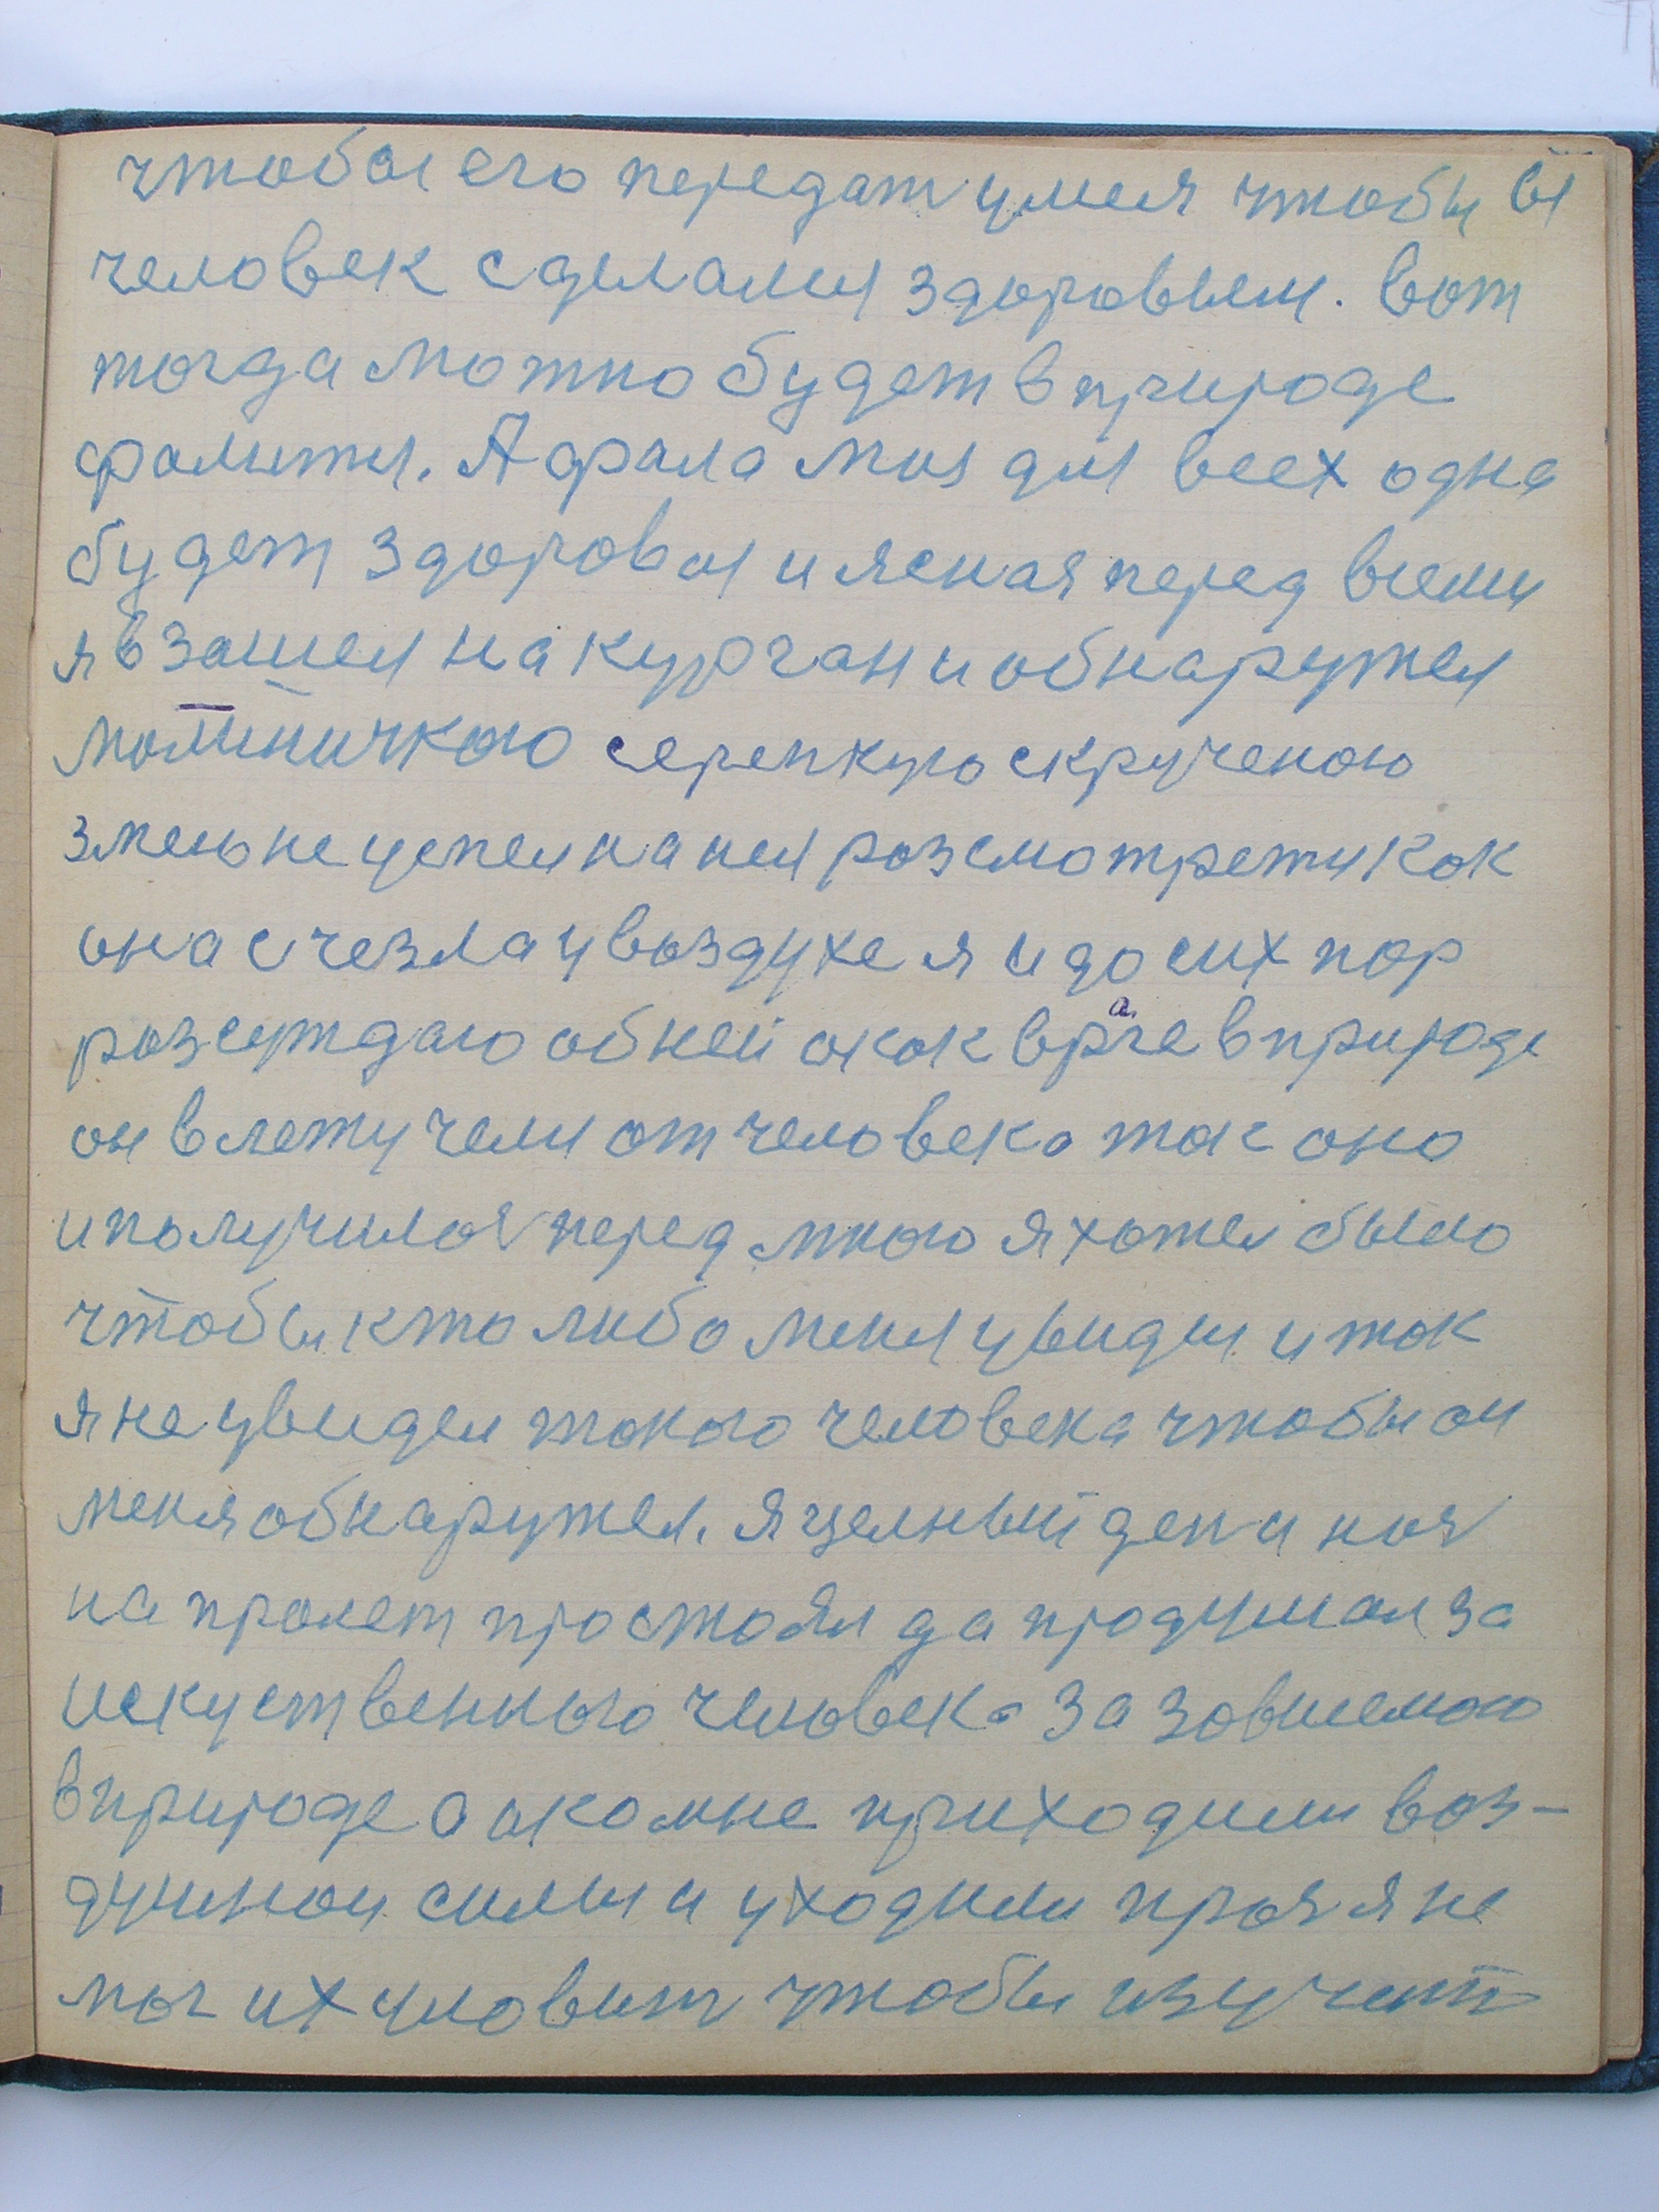 чтобы его передат умея чтобы вы
человек сделался здоровыем. вот
тогда можно будет в природе
фолится. А фала моя для всех одна
будет здоровая и ясная перед всеми
я взашел на курган и обнаружел
маленичкою серепкую скрученою
змею не успел на нея розсмотрети как
она счезла у воздухе я и до сих пор
розсуждаю об ней о как враге в природе
он влетучел от человека так оно
и получилося перед мною я хотел было
чтобы кто либо меня увидел и так
я не увидел такого человека чтобы он
меня обнаружел. Я целный ден и ноч
на пролет простоял да продумал за
искуственного человека за зовисемого
в природе а ико мне приходили воз-
душной силы и уходили проч я не
мог их уловит чтобы изучит